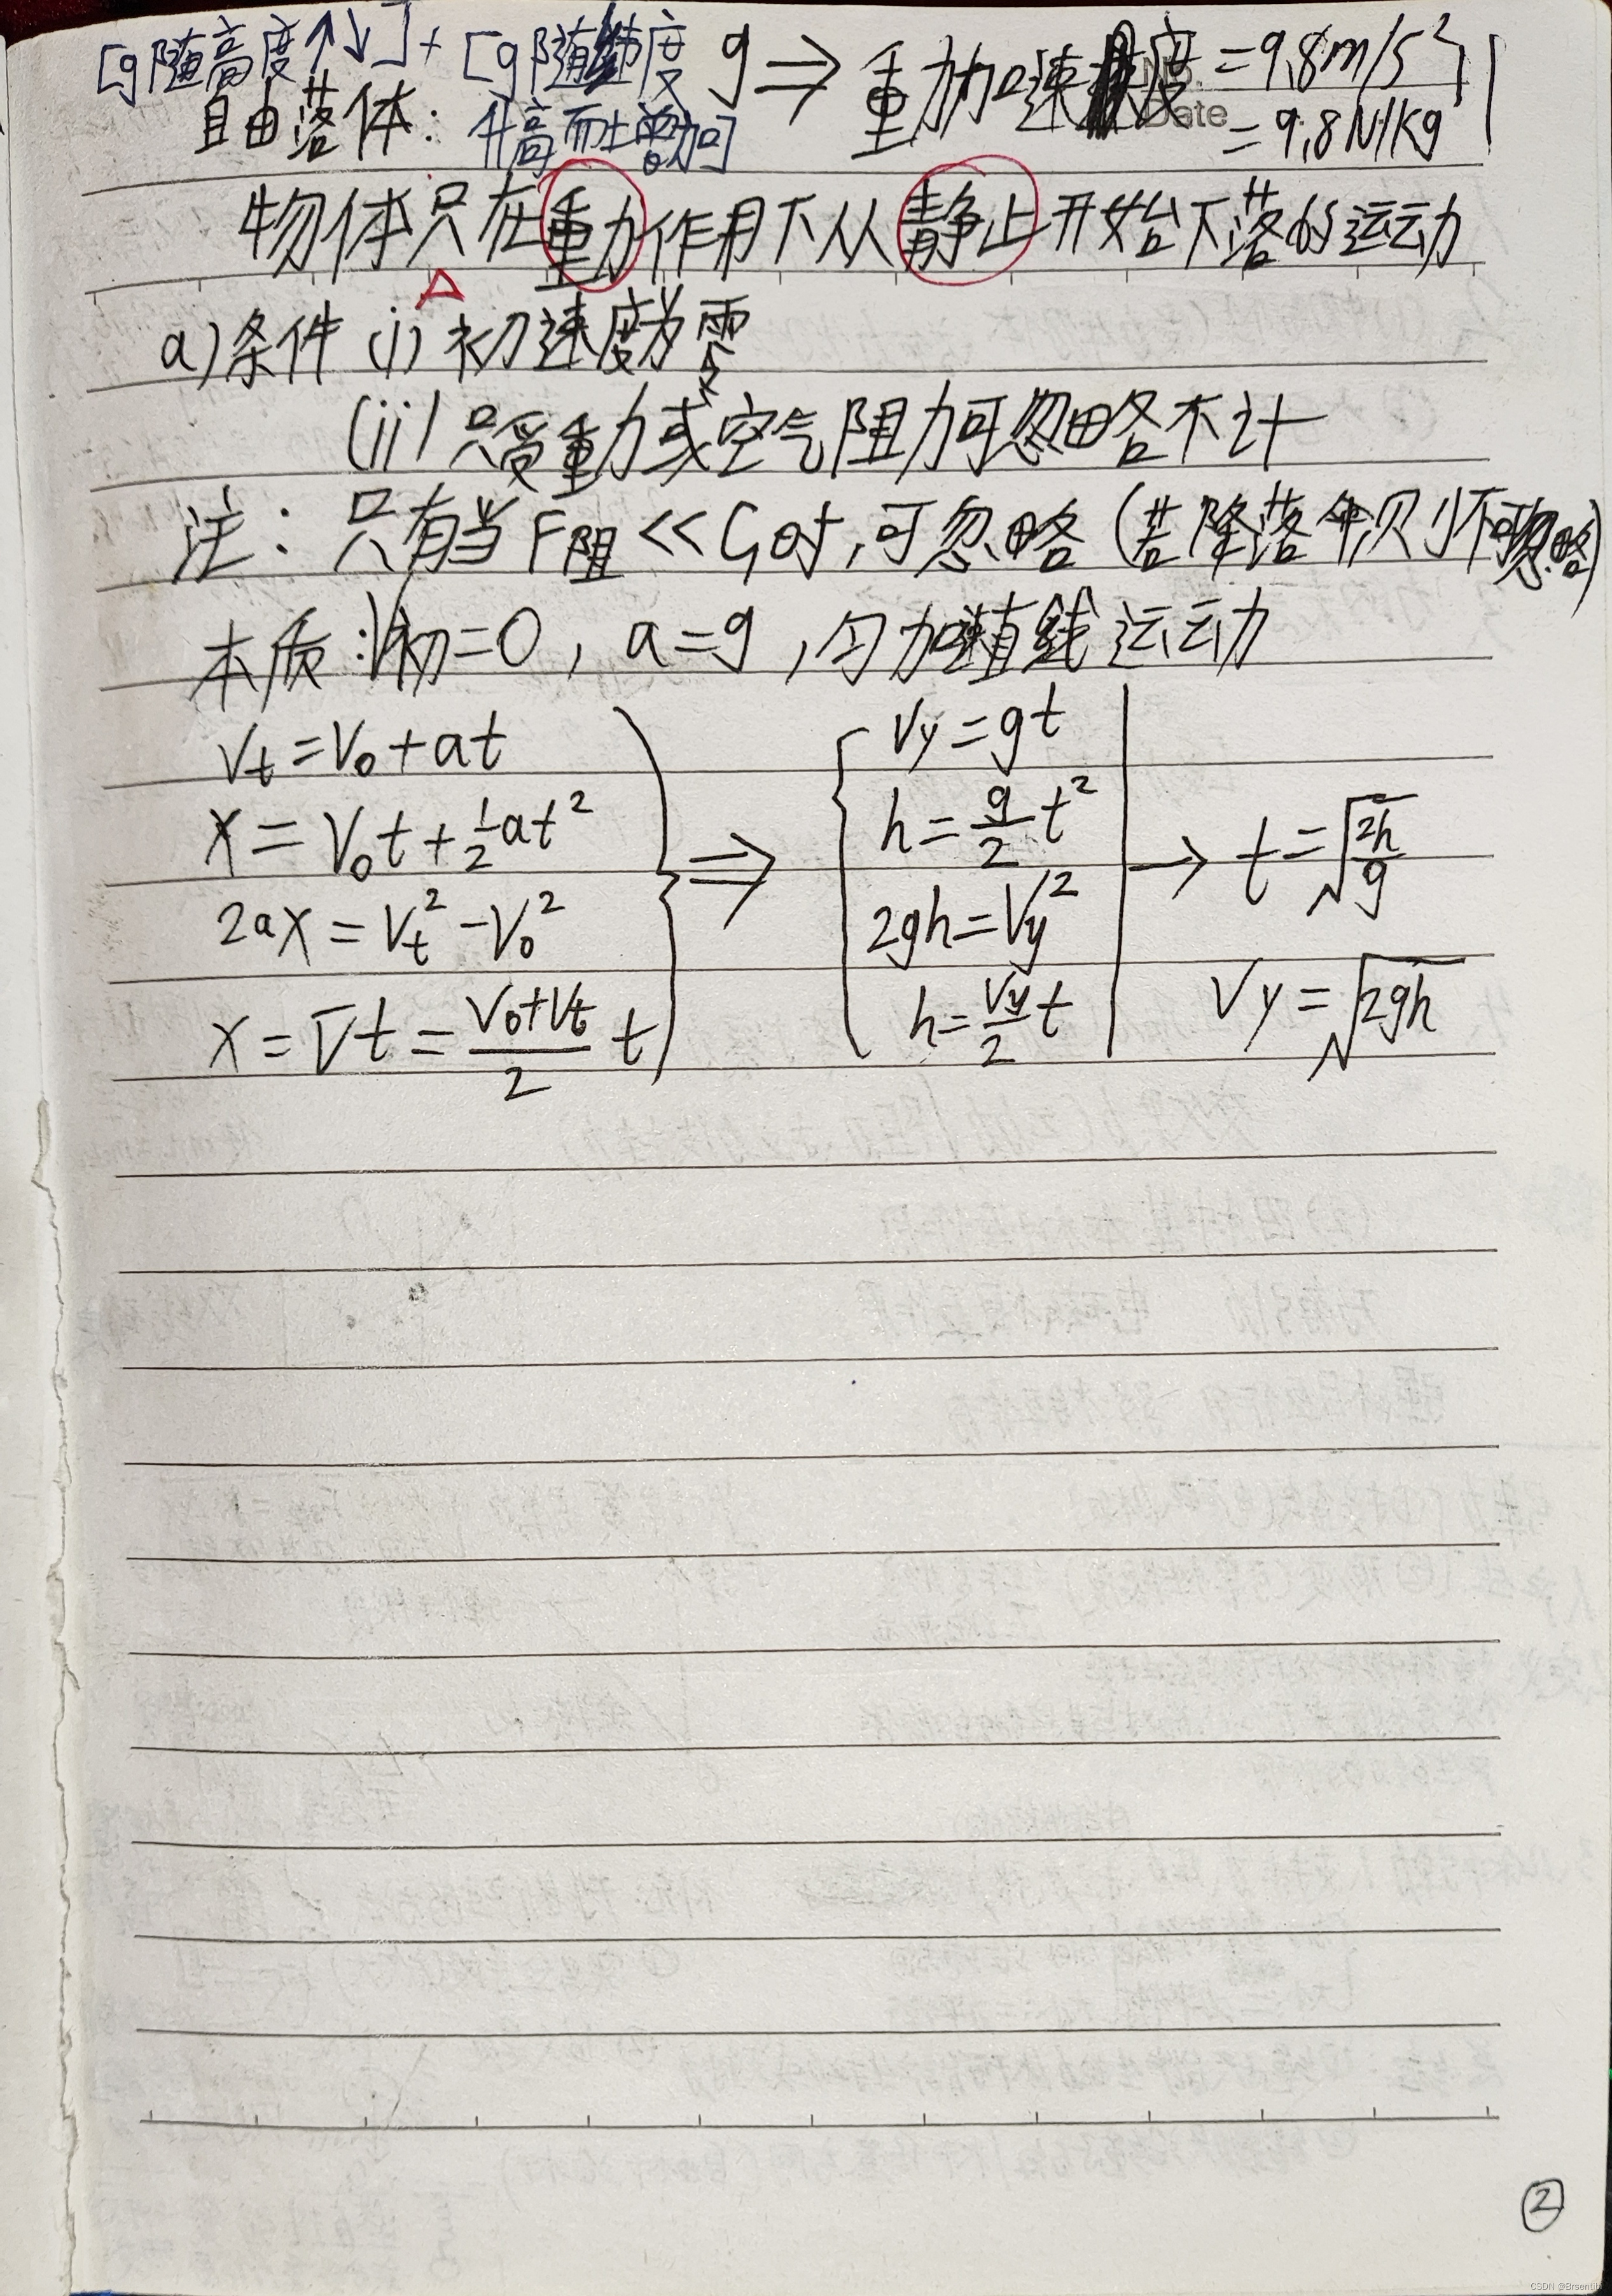 [g随高度↑↓]+[g随纬度升高而增加]
g⇒重力加速度=9.8m/s²
=9.8N/kg
Date
自由落体:
物体只在重力作用下从静止开始下落的运动
a)条件 (i)初速度为零
(ii)只受重力或空气阻力可忽略不计
注:只有当F阻<<G时,可忽略(若降落伞,则不可忽略)
本质:V初=0, a=g,匀加速直线运动
Vt=V0+at
x=V0t+½at²
2ax=Vt²-V0²
x=V̄t=(V0+Vt)/2 t
⇒
Vy=gt
h=g/2 t²
2gh=Vy²
h=Vy/2 t
→ t=√(2h/g)
Vy=√(2gh)
②
CSDN @Brsentibi